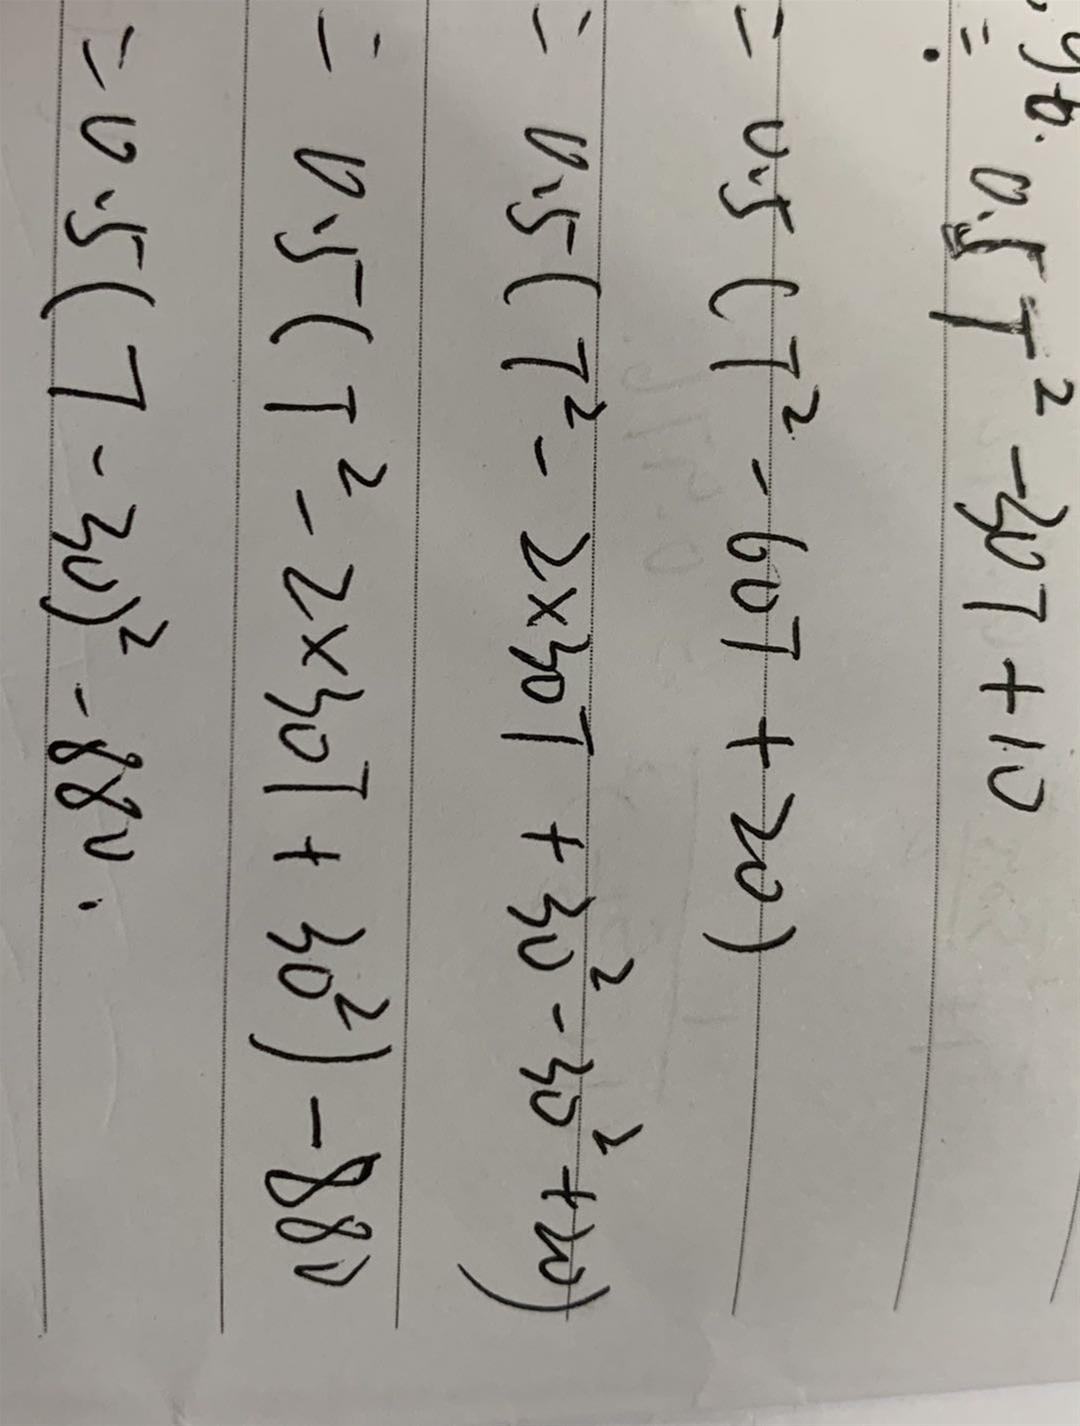 9b. 0.5T² -30T + 10
= 0.5 (T² - 60T + 20)
= 0.5 (T² - 2x30T + 30² - 30² + 20)
= 0.5 (T² - 2x30T + 30²) - 880
= 0.5 (T - 30)² - 880.